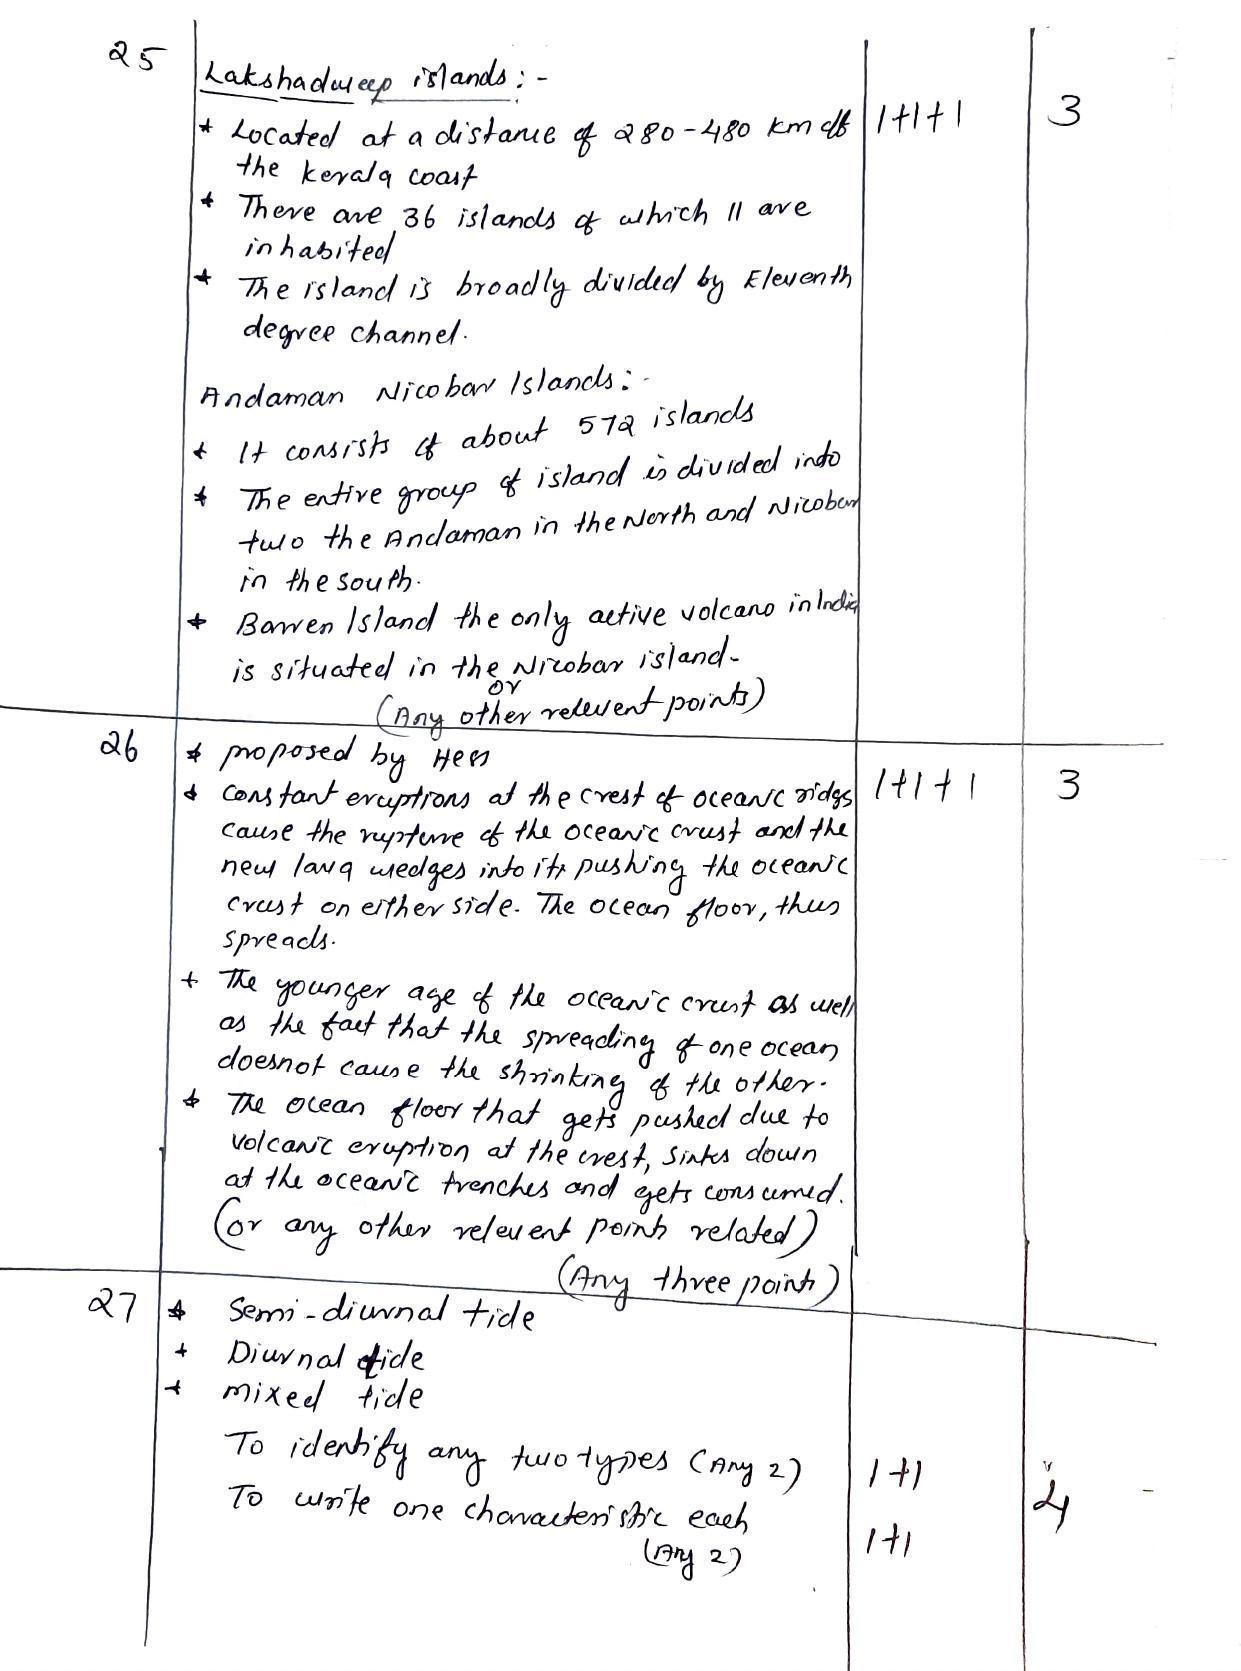 25
Lakshadweep islands:-
* Located at a distance of 280-480 km off 1+1+1 3
the kerala coast
* There are 36 islands of which 11 are
inhabited
* The island is broadly divided by Eleventh
degree channel.
Andaman Nicobar Islands:-
* It consists of about 572 islands
* The entire group of island is divided into
two the Andaman in the North and Nicobar
in the south.
* Barren Island the only active volcano in India
is situated in the Nicobar island-
or
(Any other relevent points)
26 * proposed by Hess
* constant eruptions at the crest of oceanic ridges 1+1+1 3
cause the rupture of the oceanic crust and the
new lava wedges into it, pushing the oceanic
crust on either side. The ocean floor, thus
spreads.
* The younger age of the oceanic crust as well
as the fact that the spreading of one ocean
doesnot cause the shrinking of the other.
* The ocean floor that gets pushed due to
volcanic eruption at the crest, sinks down
at the oceanic trenches and gets consumed.
(or any other relevent points related)
(Any three points)
27 * Semi-diurnal tide
* Diurnal tide
* mixed tide
To identify any two types (Any 2) 1+1 4
To write one characteristic each
(Any 2) 1+1